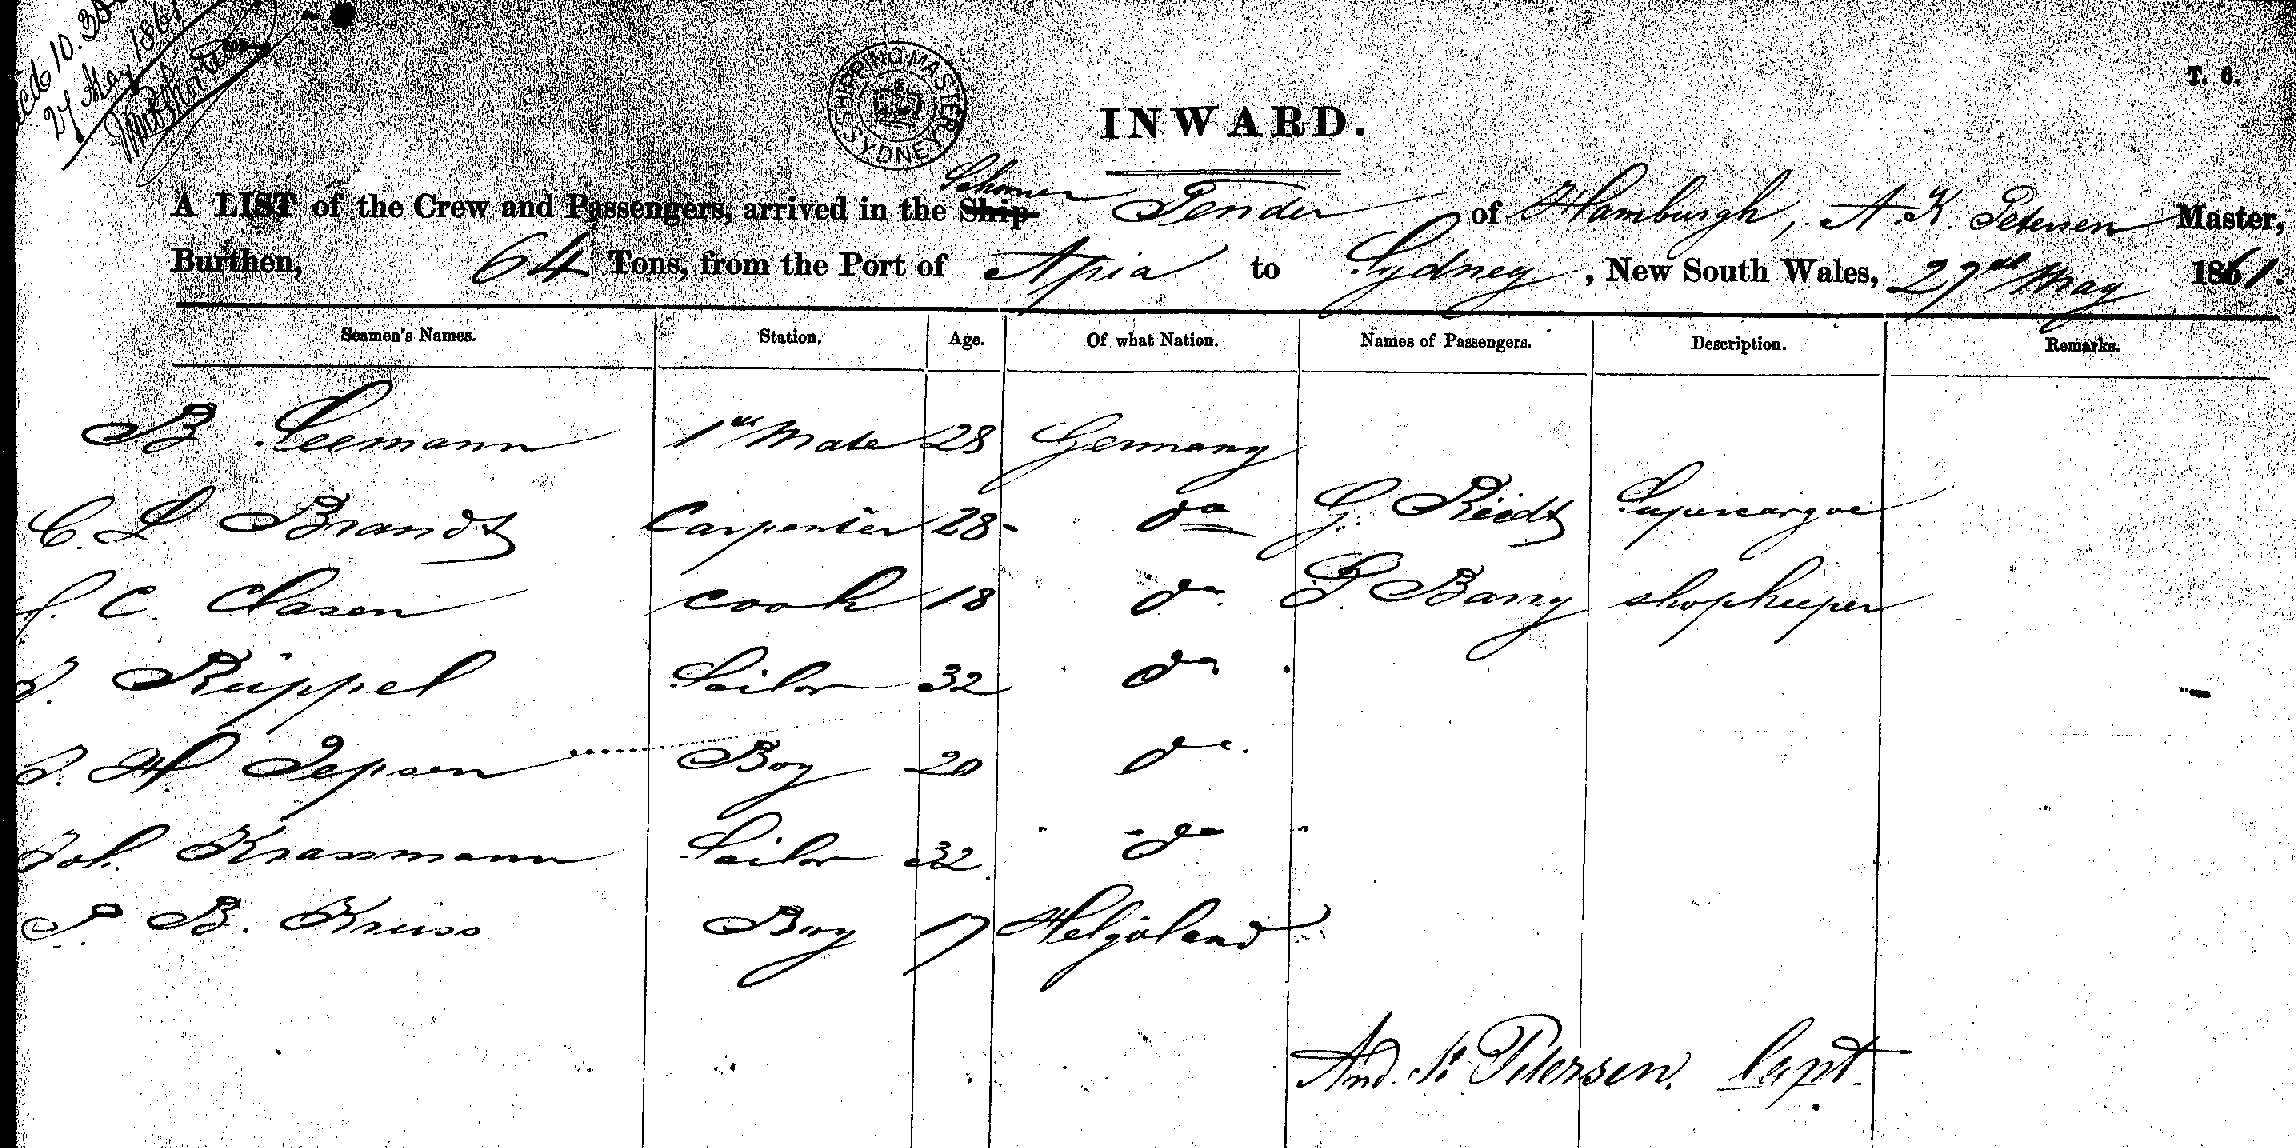 10.30
27 May 1861
SHIPPING MASTER SYDNEY
T. 6.
INWARD.
Schooner
A LIST of the Crew and Passengers, arrived in the Ship Tender of Hamburgh, A. K. Petersen Master,
Burthen, 64 Tons, from the Port of Apia to Sydney, New South Wales, 27th May 1861.
Seamen's Names. Station. Age. Of what Nation. Names of Passengers. Description. Remarks.
B Seemann 1st Mate 28 Germany
C. L Brandt Carpenter 28 do G. Riedt Supercargoe
J. C. Clasen Cook 18 do G. Barry shopkeeper
J. Rüppel Sailor 32 do
J. H. Jepsen Boy 20 do
Joh. Krassmann Sailor 32 do
P. B. Krüss Boy 17 Helgoland
And. K. Petersen. Capt.